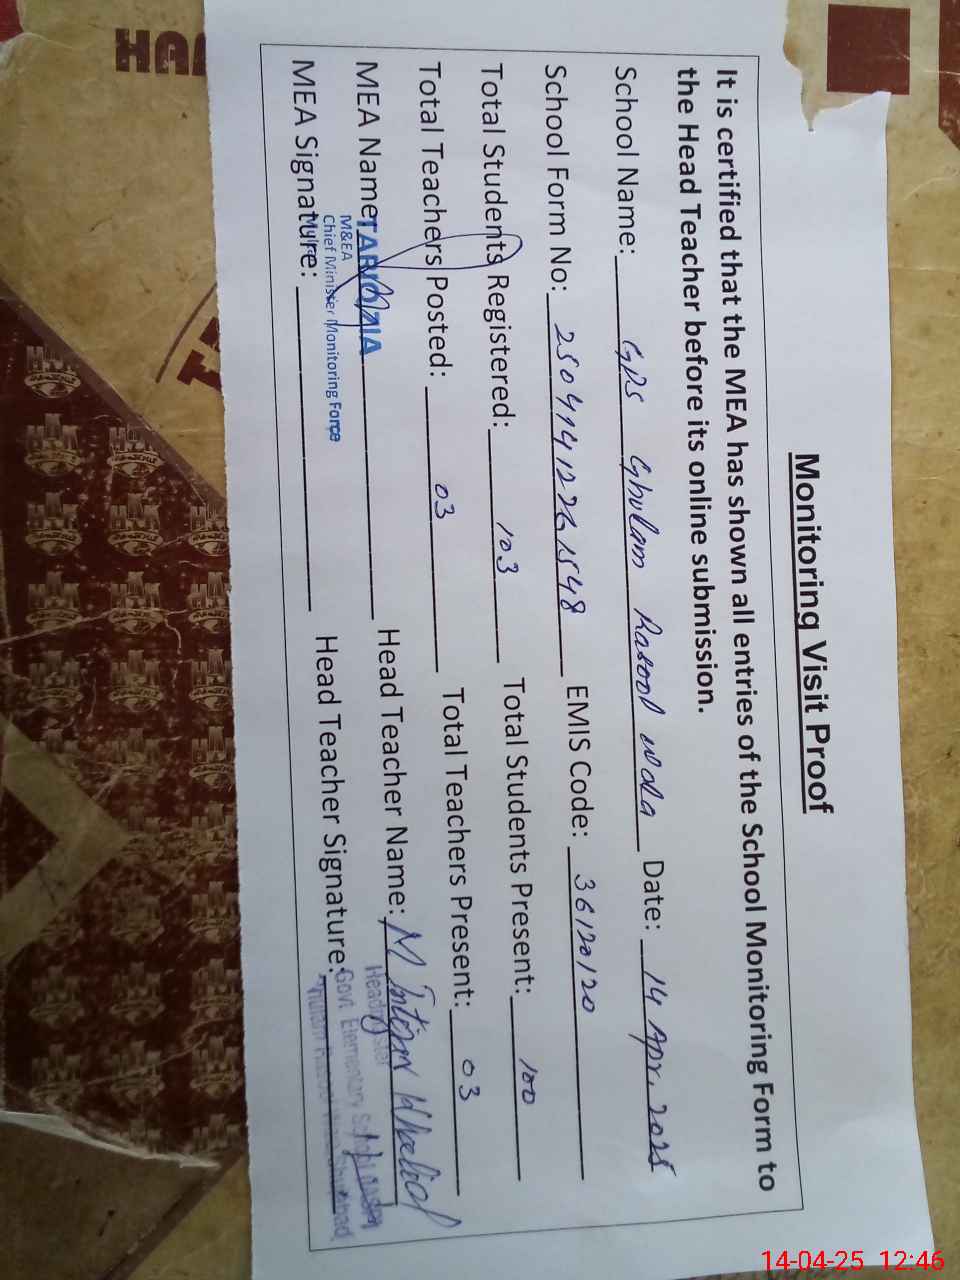 Monitoring Visit Proof
It is certified that the MEA has shown all entries of the School Monitoring Form to
the Head Teacher before its online submission.
School Name: GPS Ghulam Rasool wala Date: 14 Apr. 2025
School Form No: 25041412261548 EMIS Code: 36120120
Total Students Registered: 103 Total Students Present: 100
Total Teachers Posted: 03 Total Teachers Present: 03
MEA Name: TARIQ ZIA Head Teacher Name: M
M&EA
Chief Minister Monitoring Force
MEA Signature: Head Teacher Signature:
Headmaster
Govt. Elementary School
14-04-25 12:46